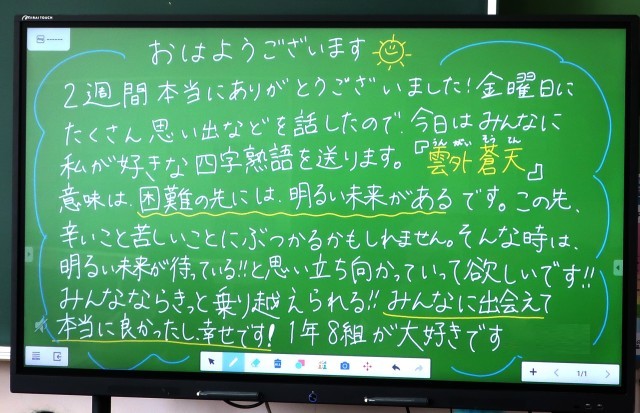 おはようございます
2週間本当にありがとうございました！金曜日に
たくさん思い出などを話したので、今日はみんなに
私が好きな四字熟語を送ります。『雲外蒼天』
うんがいそうてん
意味は、困難の先には、明るい未来があるです。この先、
辛いこと苦しいことにぶつかるかもしれません。そんな時は、
明るい未来が待っている!!と思い立ち向かっていって欲しいです!!
みんなならきっと乗り越えられる!! みんなに出会えて
本当に良かったし、幸せです！1年8組が大好きです
1/1